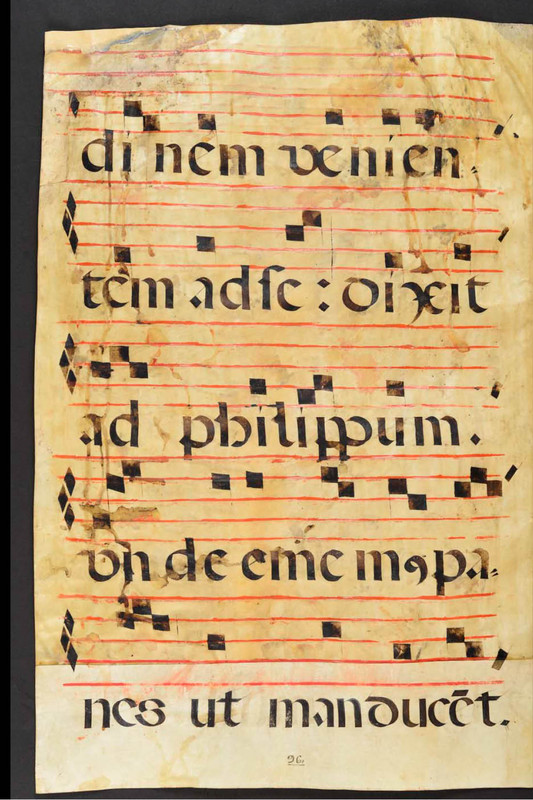 di nem venien-
tem adse : dixit
ad philippum.
vn de eme mꝰ pa-
nes ut manducēt.